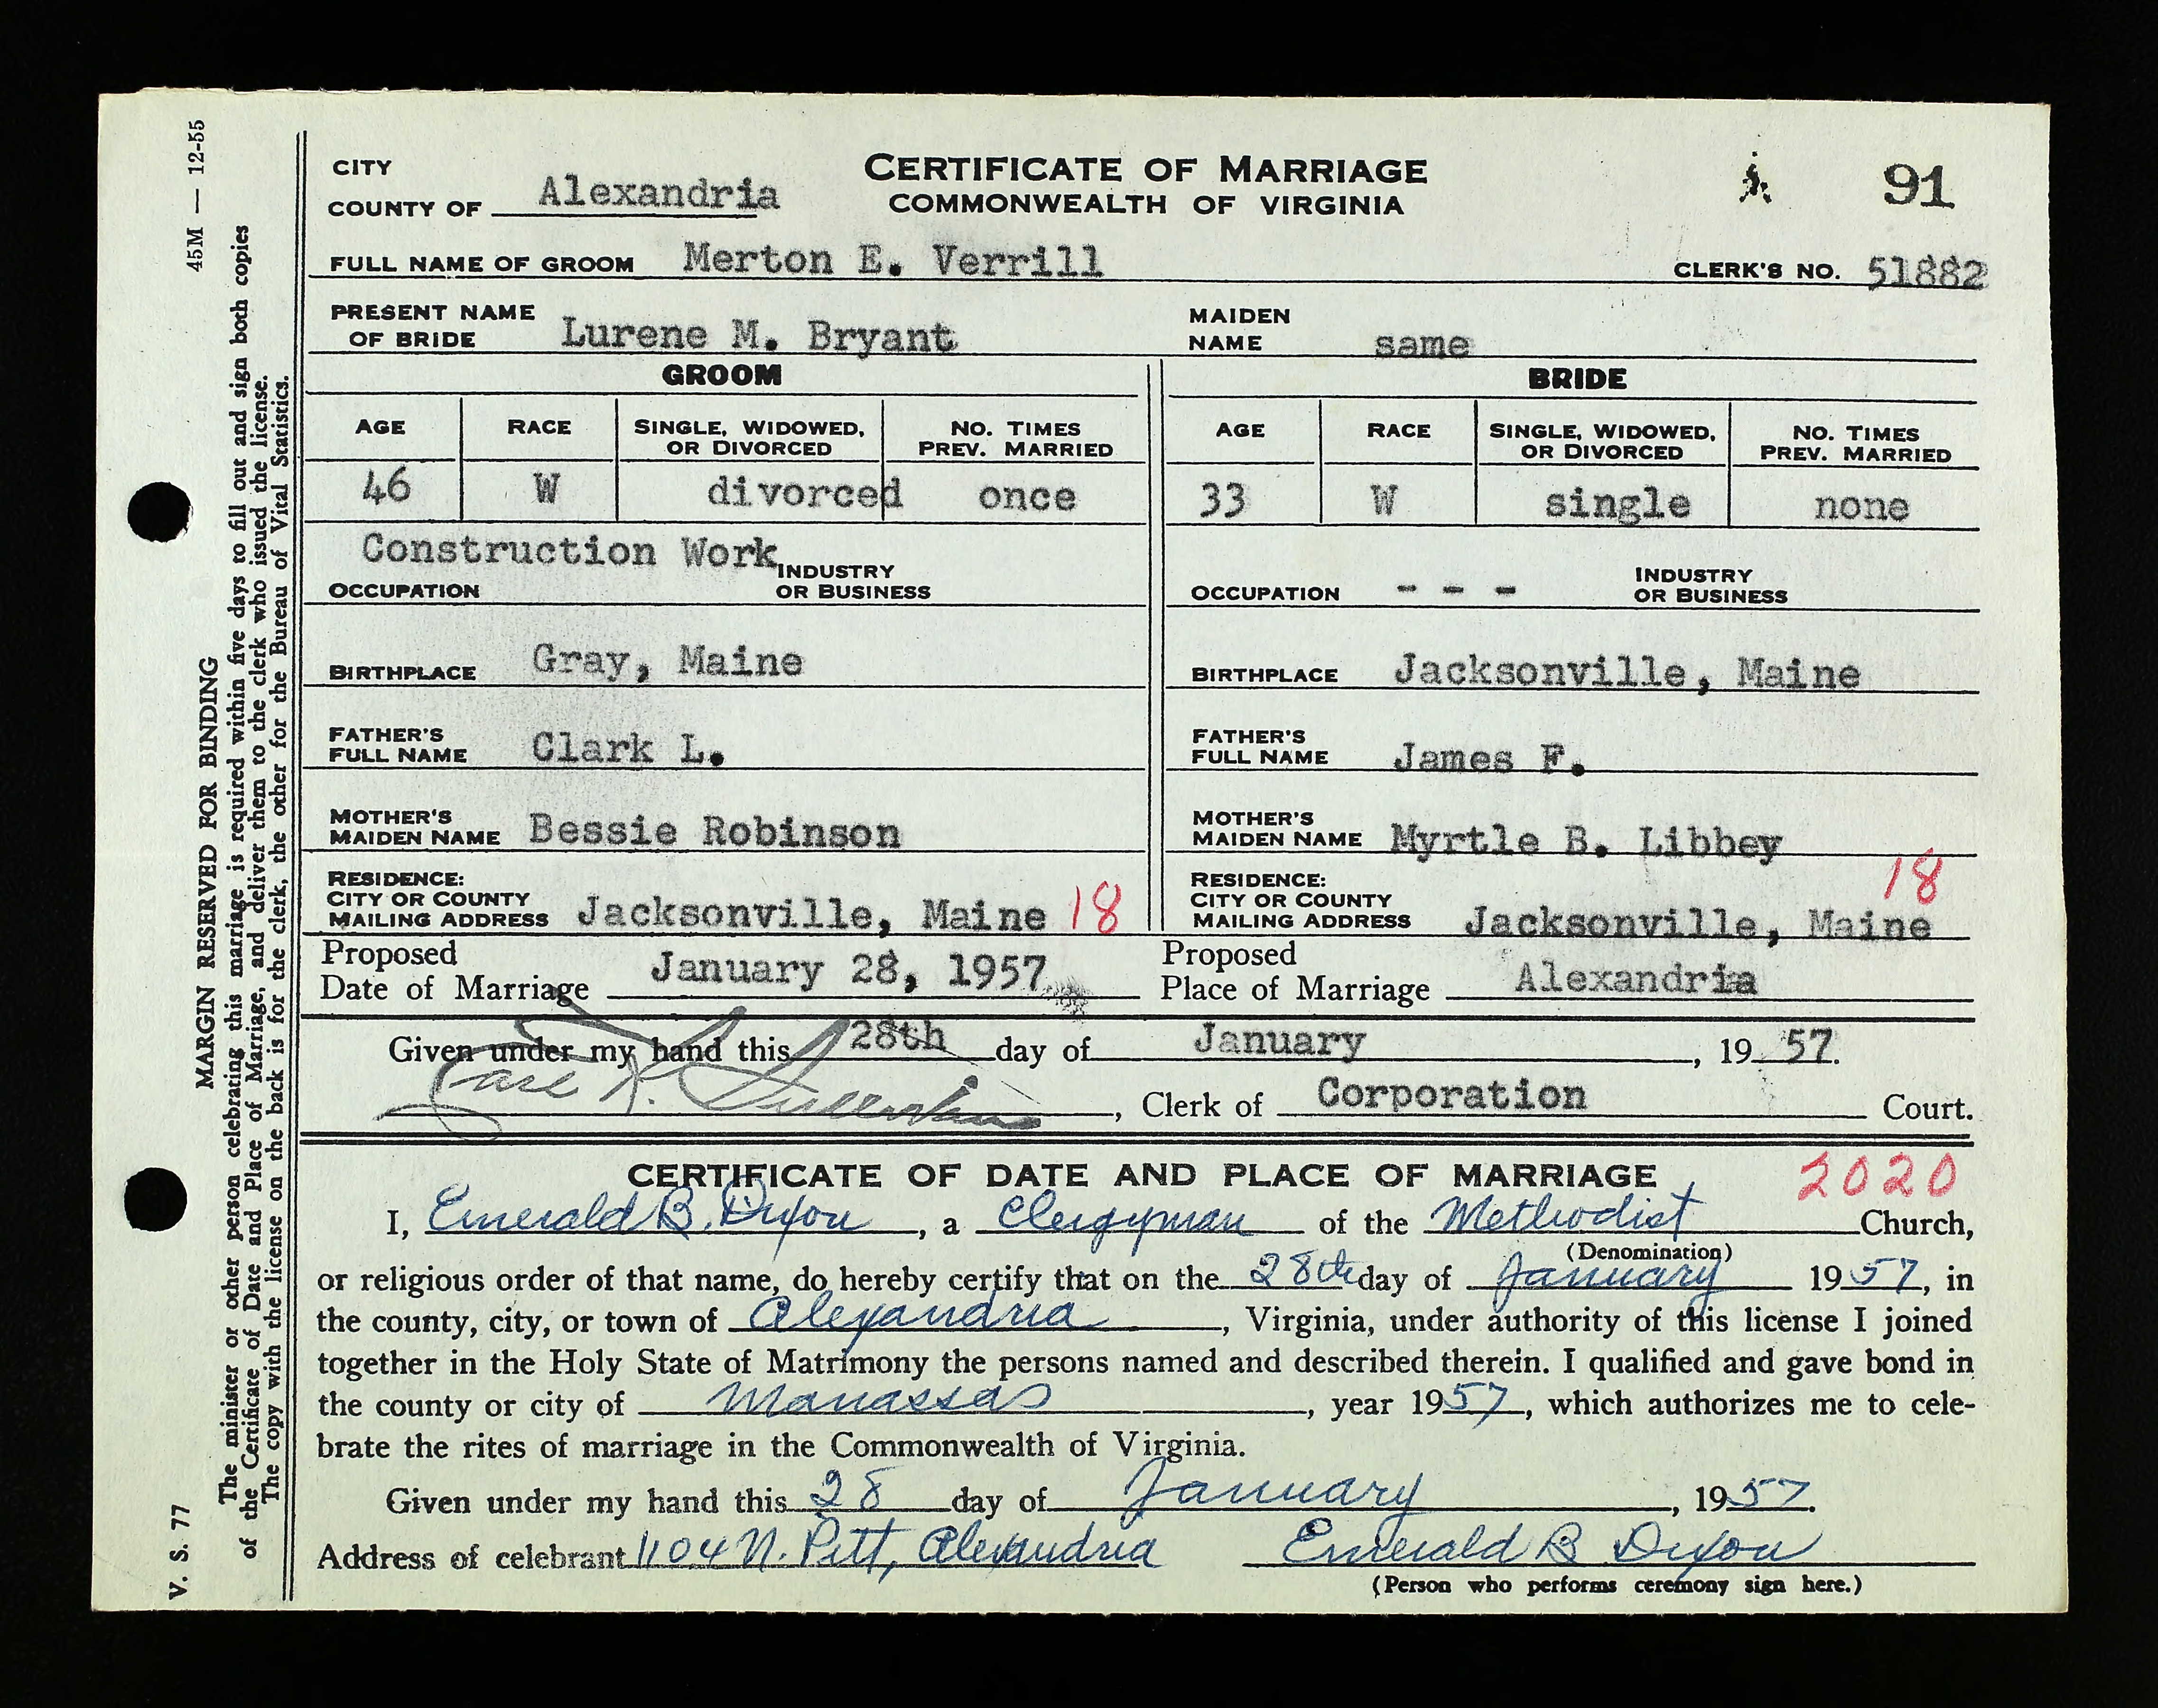 45M — 12-55
MARGIN RESERVED FOR BINDING
The minister or other person celebrating this marriage is required within five days to fill out and sign both copies
of the Certificate of Date and Place of Marriage, and deliver them to the clerk who issued the license.
The copy with the license on the back is for the clerk, the other for the Bureau of Vital Statistics.
V. S. 77
CERTIFICATE OF MARRIAGE
COMMONWEALTH OF VIRGINIA
91
CITY
COUNTY OF Alexandria
FULL NAME OF GROOM Merton E. Verrill CLERK'S NO. 51882
PRESENT NAME OF BRIDE Lurene M. Bryant MAIDEN NAME same
GROOM BRIDE
AGE RACE SINGLE, WIDOWED, OR DIVORCED NO. TIMES PREV. MARRIED AGE RACE SINGLE, WIDOWED, OR DIVORCED NO. TIMES PREV. MARRIED
46 W divorced once 33 W single none
OCCUPATION Construction Work INDUSTRY OR BUSINESS OCCUPATION - - - INDUSTRY OR BUSINESS
BIRTHPLACE Gray, Maine BIRTHPLACE Jacksonville, Maine
FATHER'S FULL NAME Clark L. FATHER'S FULL NAME James F.
MOTHER'S MAIDEN NAME Bessie Robinson MOTHER'S MAIDEN NAME Myrtle B. Libbey
RESIDENCE: CITY OR COUNTY MAILING ADDRESS Jacksonville, Maine 18 RESIDENCE: CITY OR COUNTY MAILING ADDRESS Jacksonville, Maine 18
Proposed Date of Marriage January 28, 1957 Proposed Place of Marriage Alexandria
Given under my hand this 28th day of January, 19 57.
, Clerk of Corporation Court.
CERTIFICATE OF DATE AND PLACE OF MARRIAGE 2020
I, Emerald B. Dixon, a Clergyman of the Methodist Church,
(Denomination)
or religious order of that name, do hereby certify that on the 28th day of January 1957, in
the county, city, or town of Alexandria, Virginia, under authority of this license I joined
together in the Holy State of Matrimony the persons named and described therein. I qualified and gave bond in
the county or city of Manassas, year 1957, which authorizes me to cele-
brate the rites of marriage in the Commonwealth of Virginia.
Given under my hand this 28 day of January, 1957.
Address of celebrant 1104 N. Pitt, Alexandria Emerald B Dixon
(Person who performs ceremony sign here.)